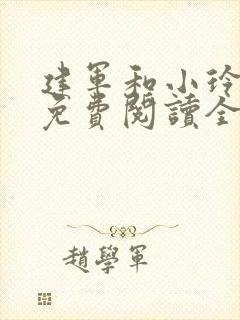 建军和小玲
免費閱讀全
趙學軍